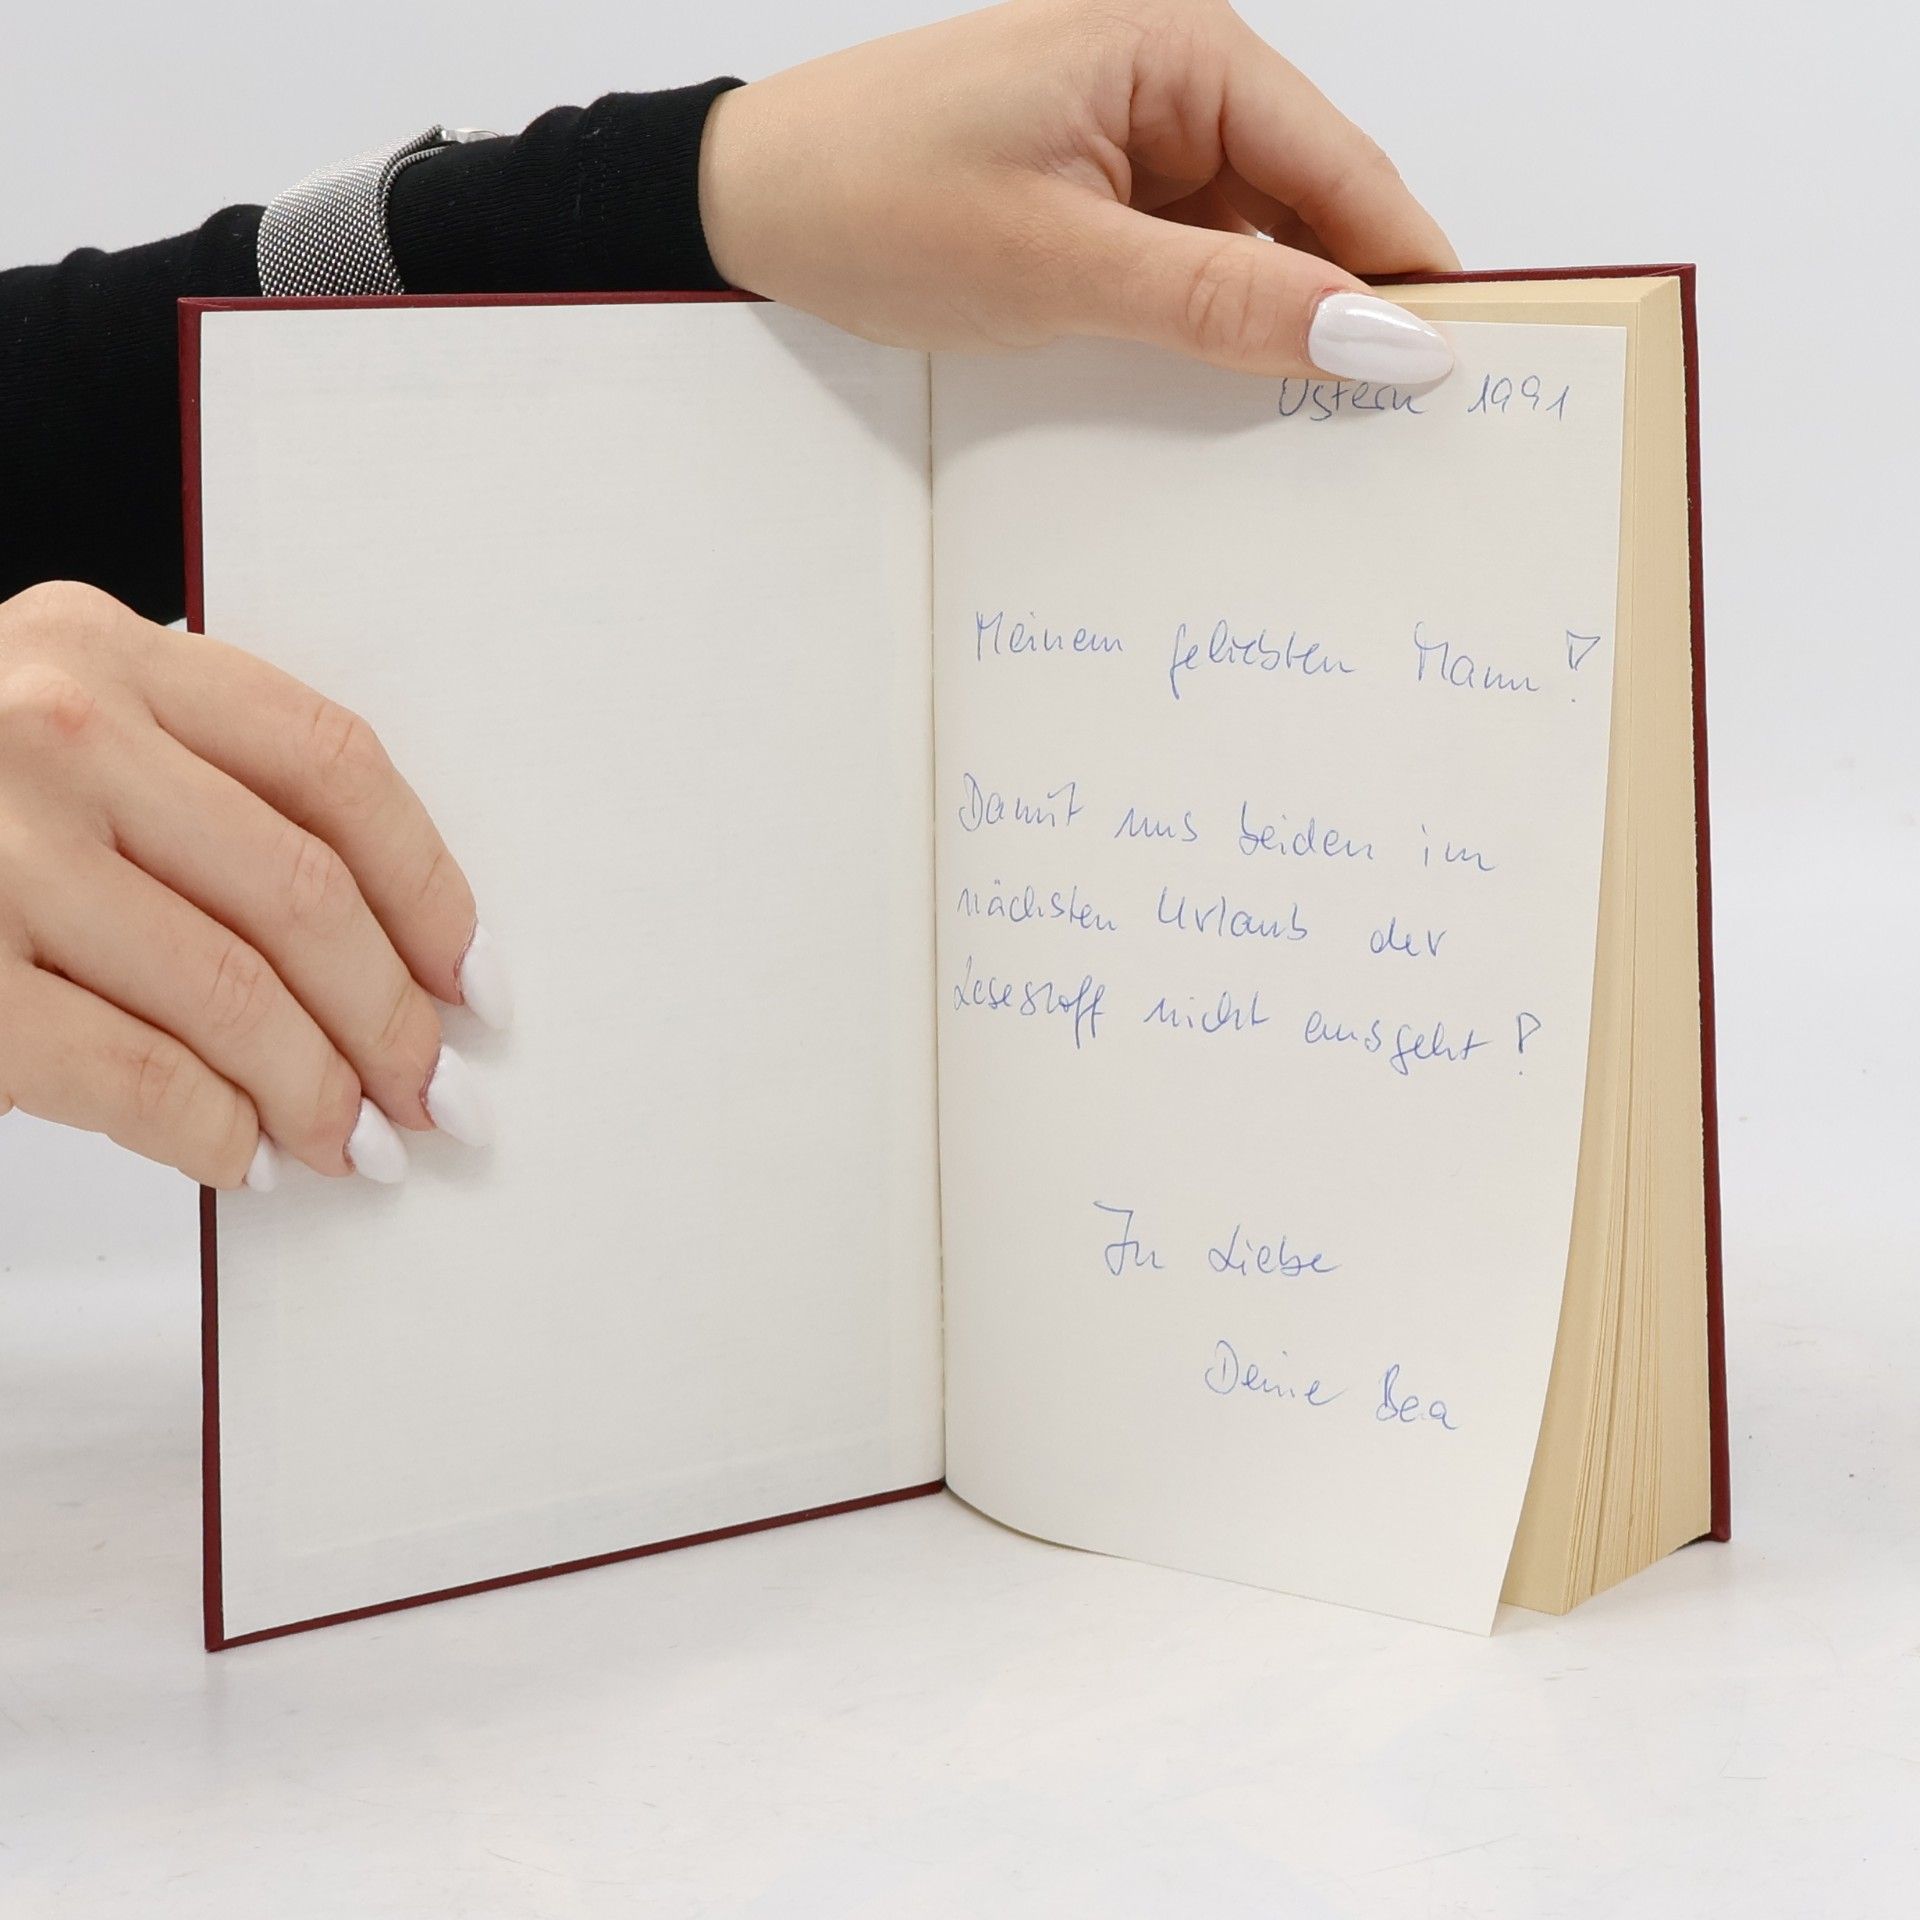 Ostern 1991
Meinem geliebten Mann!
Damit uns beiden im
nächsten Urlaub der
Lesestoff nicht ausgeht!
In Liebe
Deine Bea